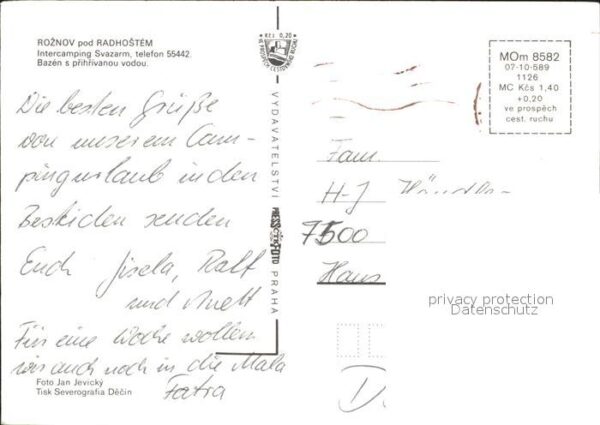 ROŽNOV pod RADHOŠTĚM
Intercamping Svazarm, telefon 55442.
Bazén s přihřívanou vodou.
Kčs 0,20
VE PROSPĚCH CESTOVNÍHO RUCHU
MOm 8582
07-10-589
1126
MC Kčs 1,40
+0,20
ve prospěch
cest. ruchu
Die besten Grüße
von unserem Cam-
pingurlaub in den
Beskiden senden
Euch Gisela, Ralf
und Anett
Für eine Woche wollen
wir auch noch in die Mala
Fatra
VYDAVATELSTVÍ PRESSFOTO PRAHA
Fam.
H-J
7500
Hans
privacy protection
Datenschutz
D
Foto Jan Jevický
Tisk Severografia Děčín